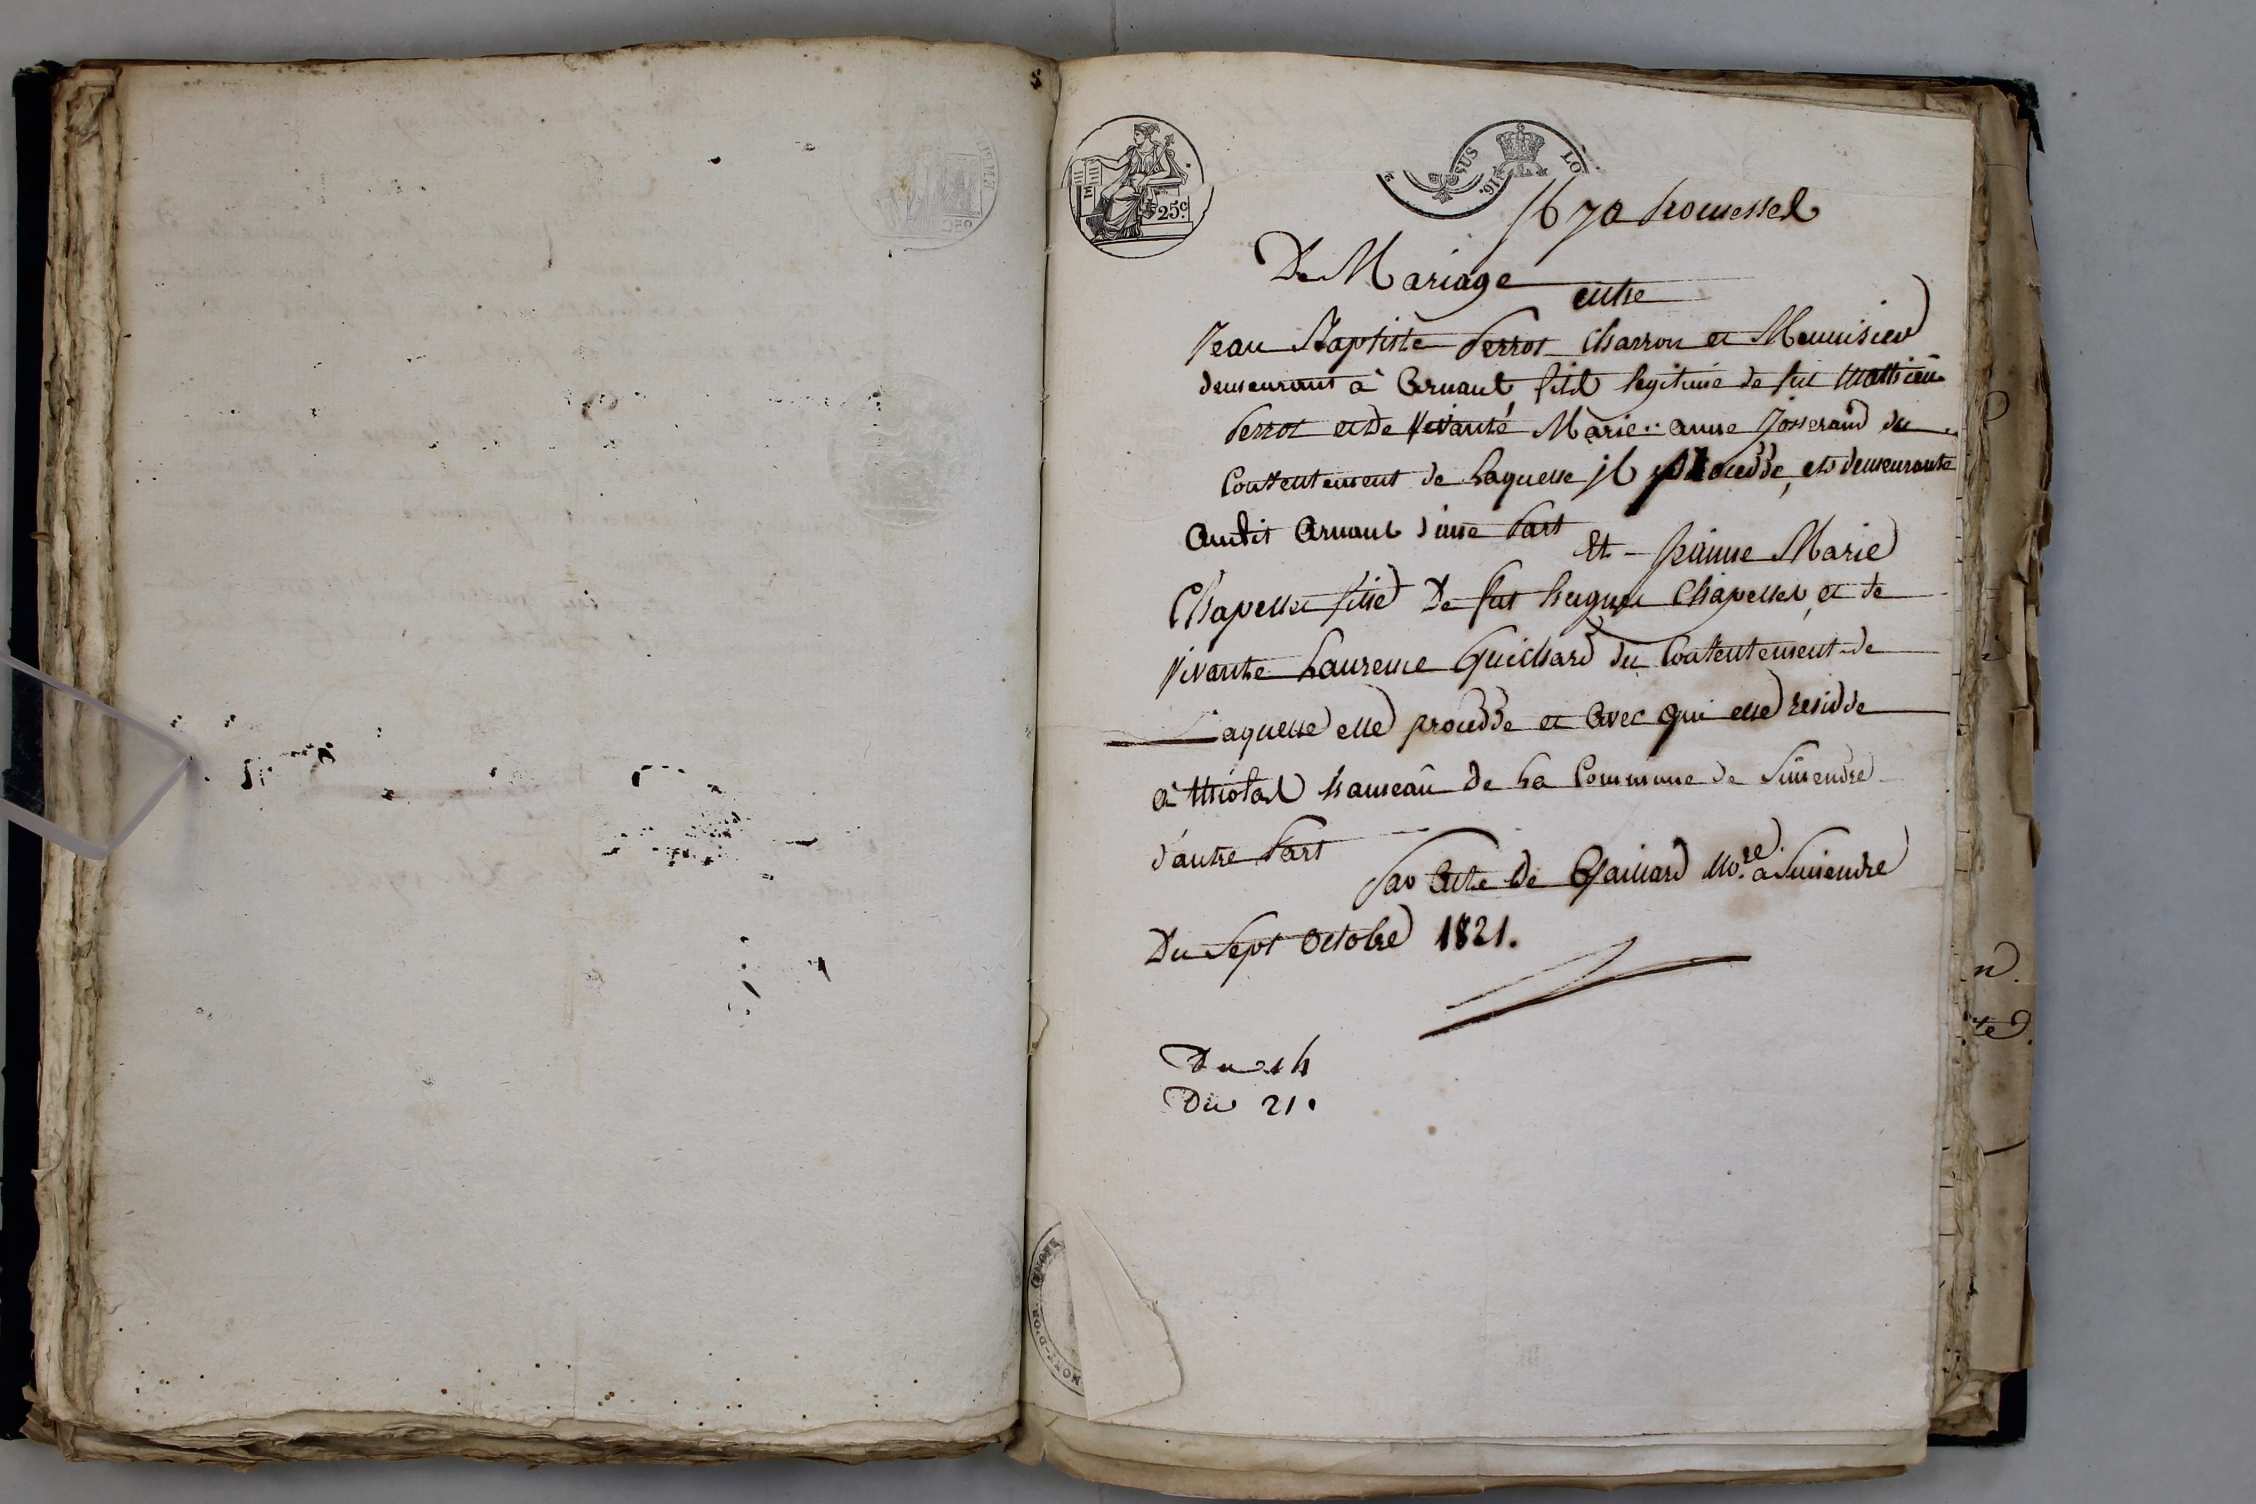 25c.
SUS
LO
1816.
Il y a promesses
De Mariage entre
Jean Baptiste Perrot Charron et Menuisier
demeurant à Arnaut fils legitime de feu Mathieu
Perrot et De vivante Marie anne Josserand du
Contentement de Laquelle il procedde, et demeurante
audit Arnaut d'une Part Et Jeanne Marie
Chapellu fille De feu hugues Chapellu, et de
vivante Laurence Guichard du Contentement de
Laquelle elle procedde et avec qui elle residde
à hameau de La Commune de Simendre
d'autre Part Par Acte de Gaillard No.re à Simendre
Du Sept Octobre 1821.
Du 14
Du 21.
MONT-D'OR